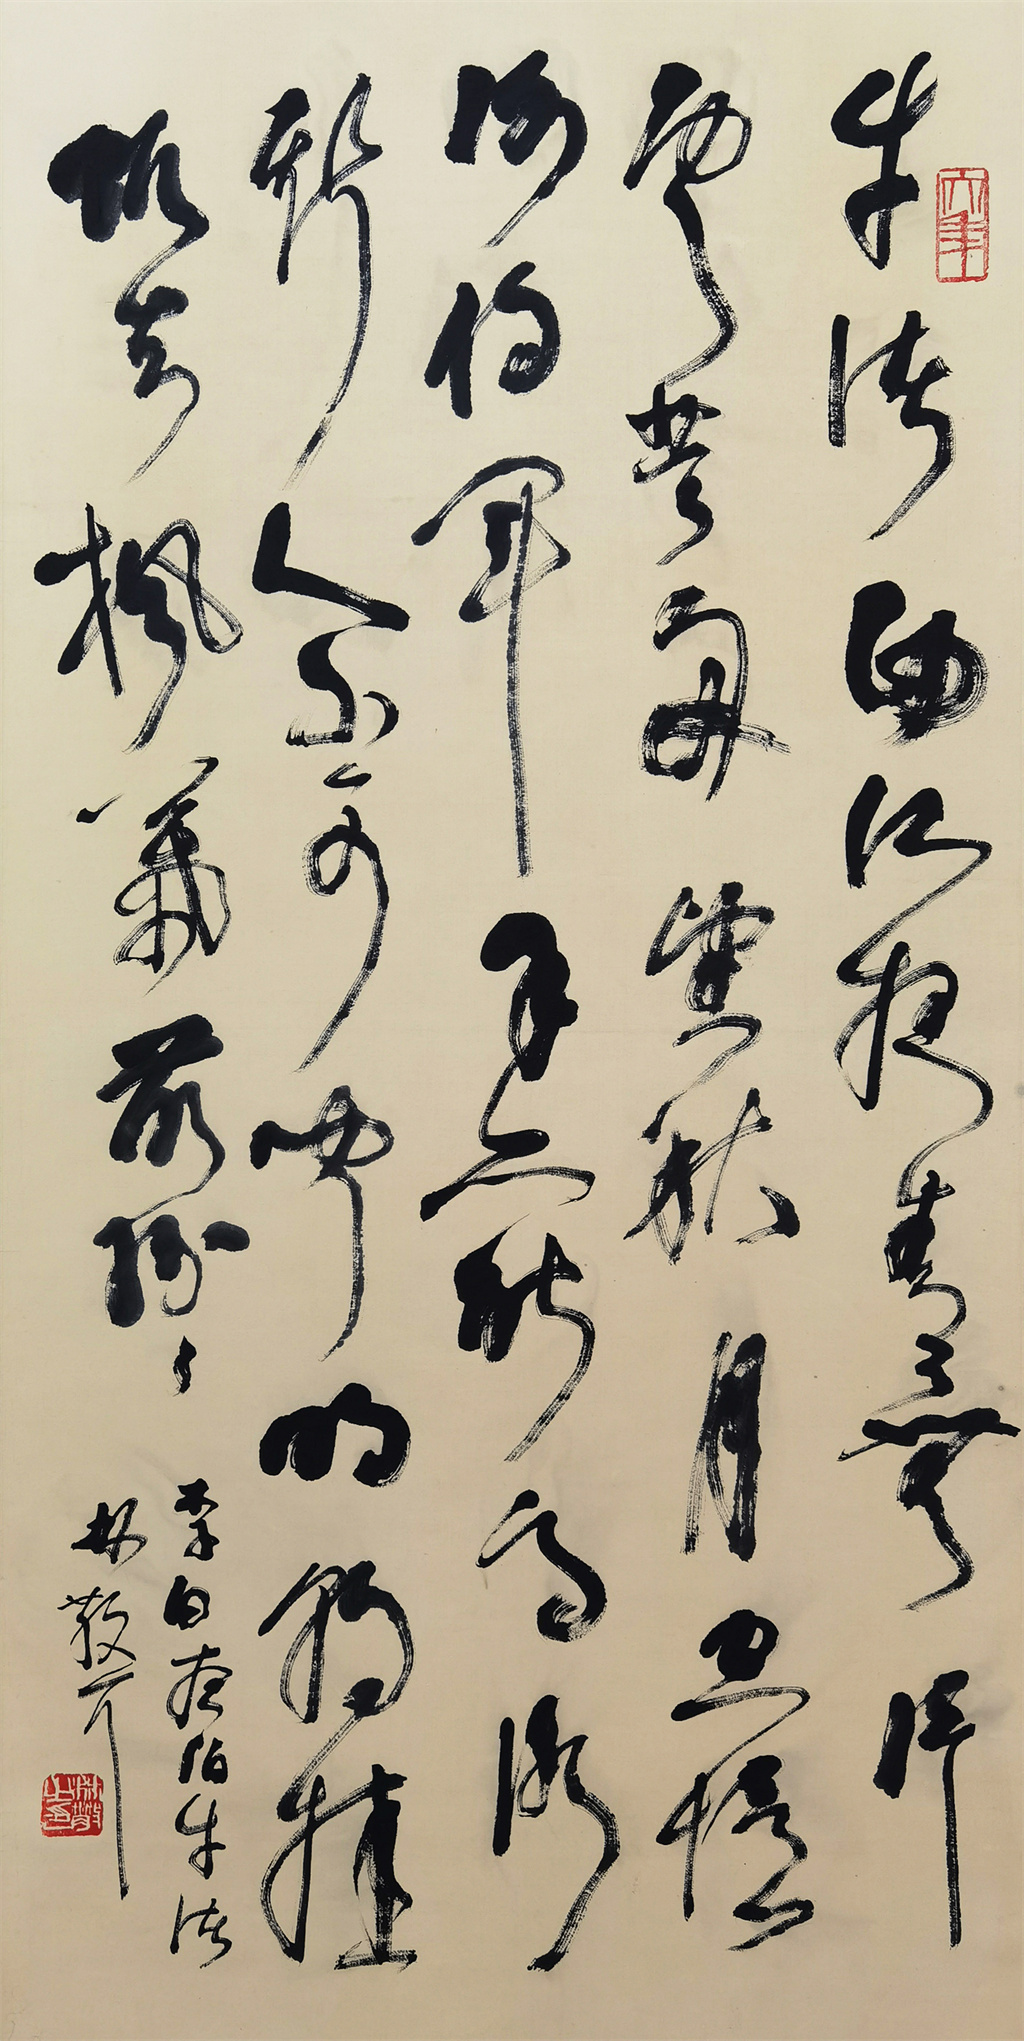 牛渚西江夜青天無片
雲登舟望秋月空憶
謝將軍余亦能高詠
斯人不可聞明朝挂
帆去楓葉落紛々
李白夜泊牛渚
林散耳
林散之印